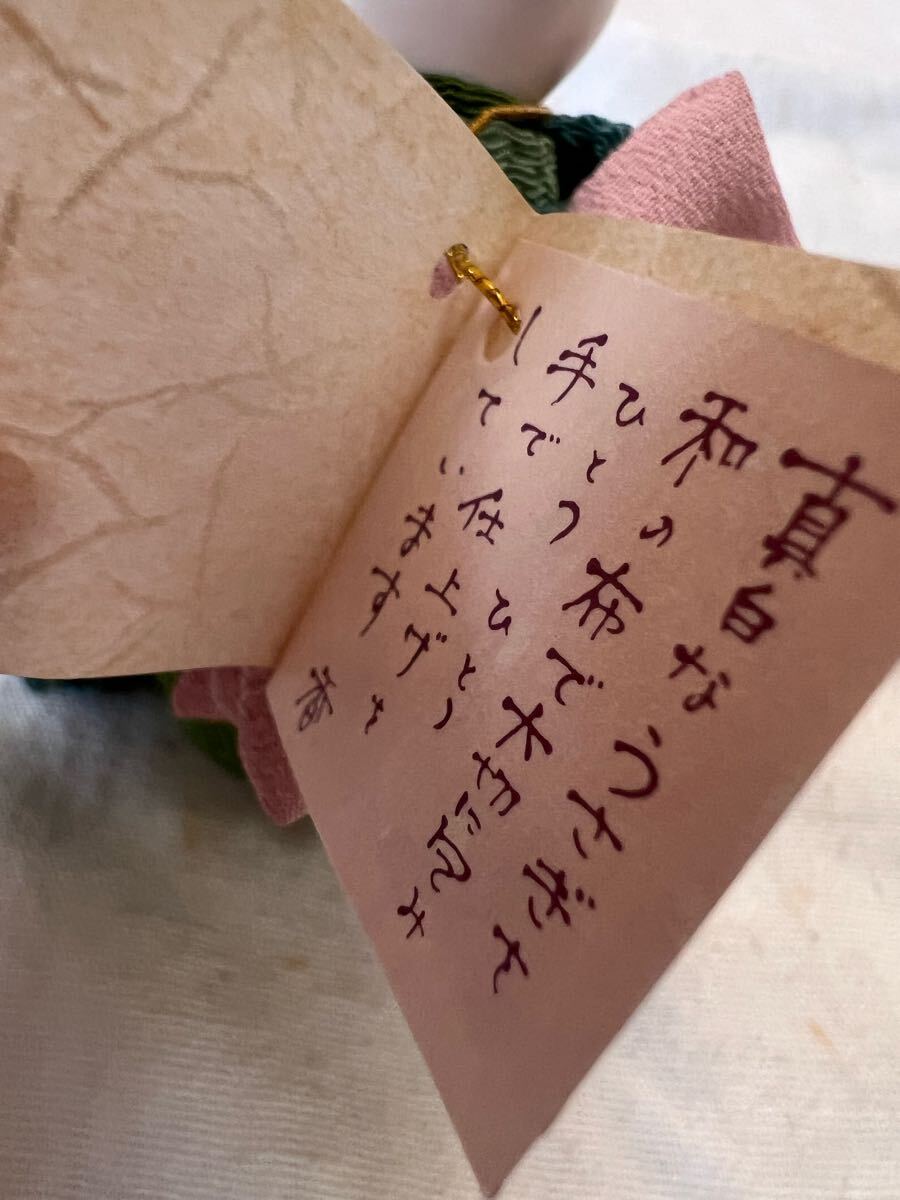 真白なうさぎを
和の布で大切に包み
ひとつひとつ
手で仕上げを
しています